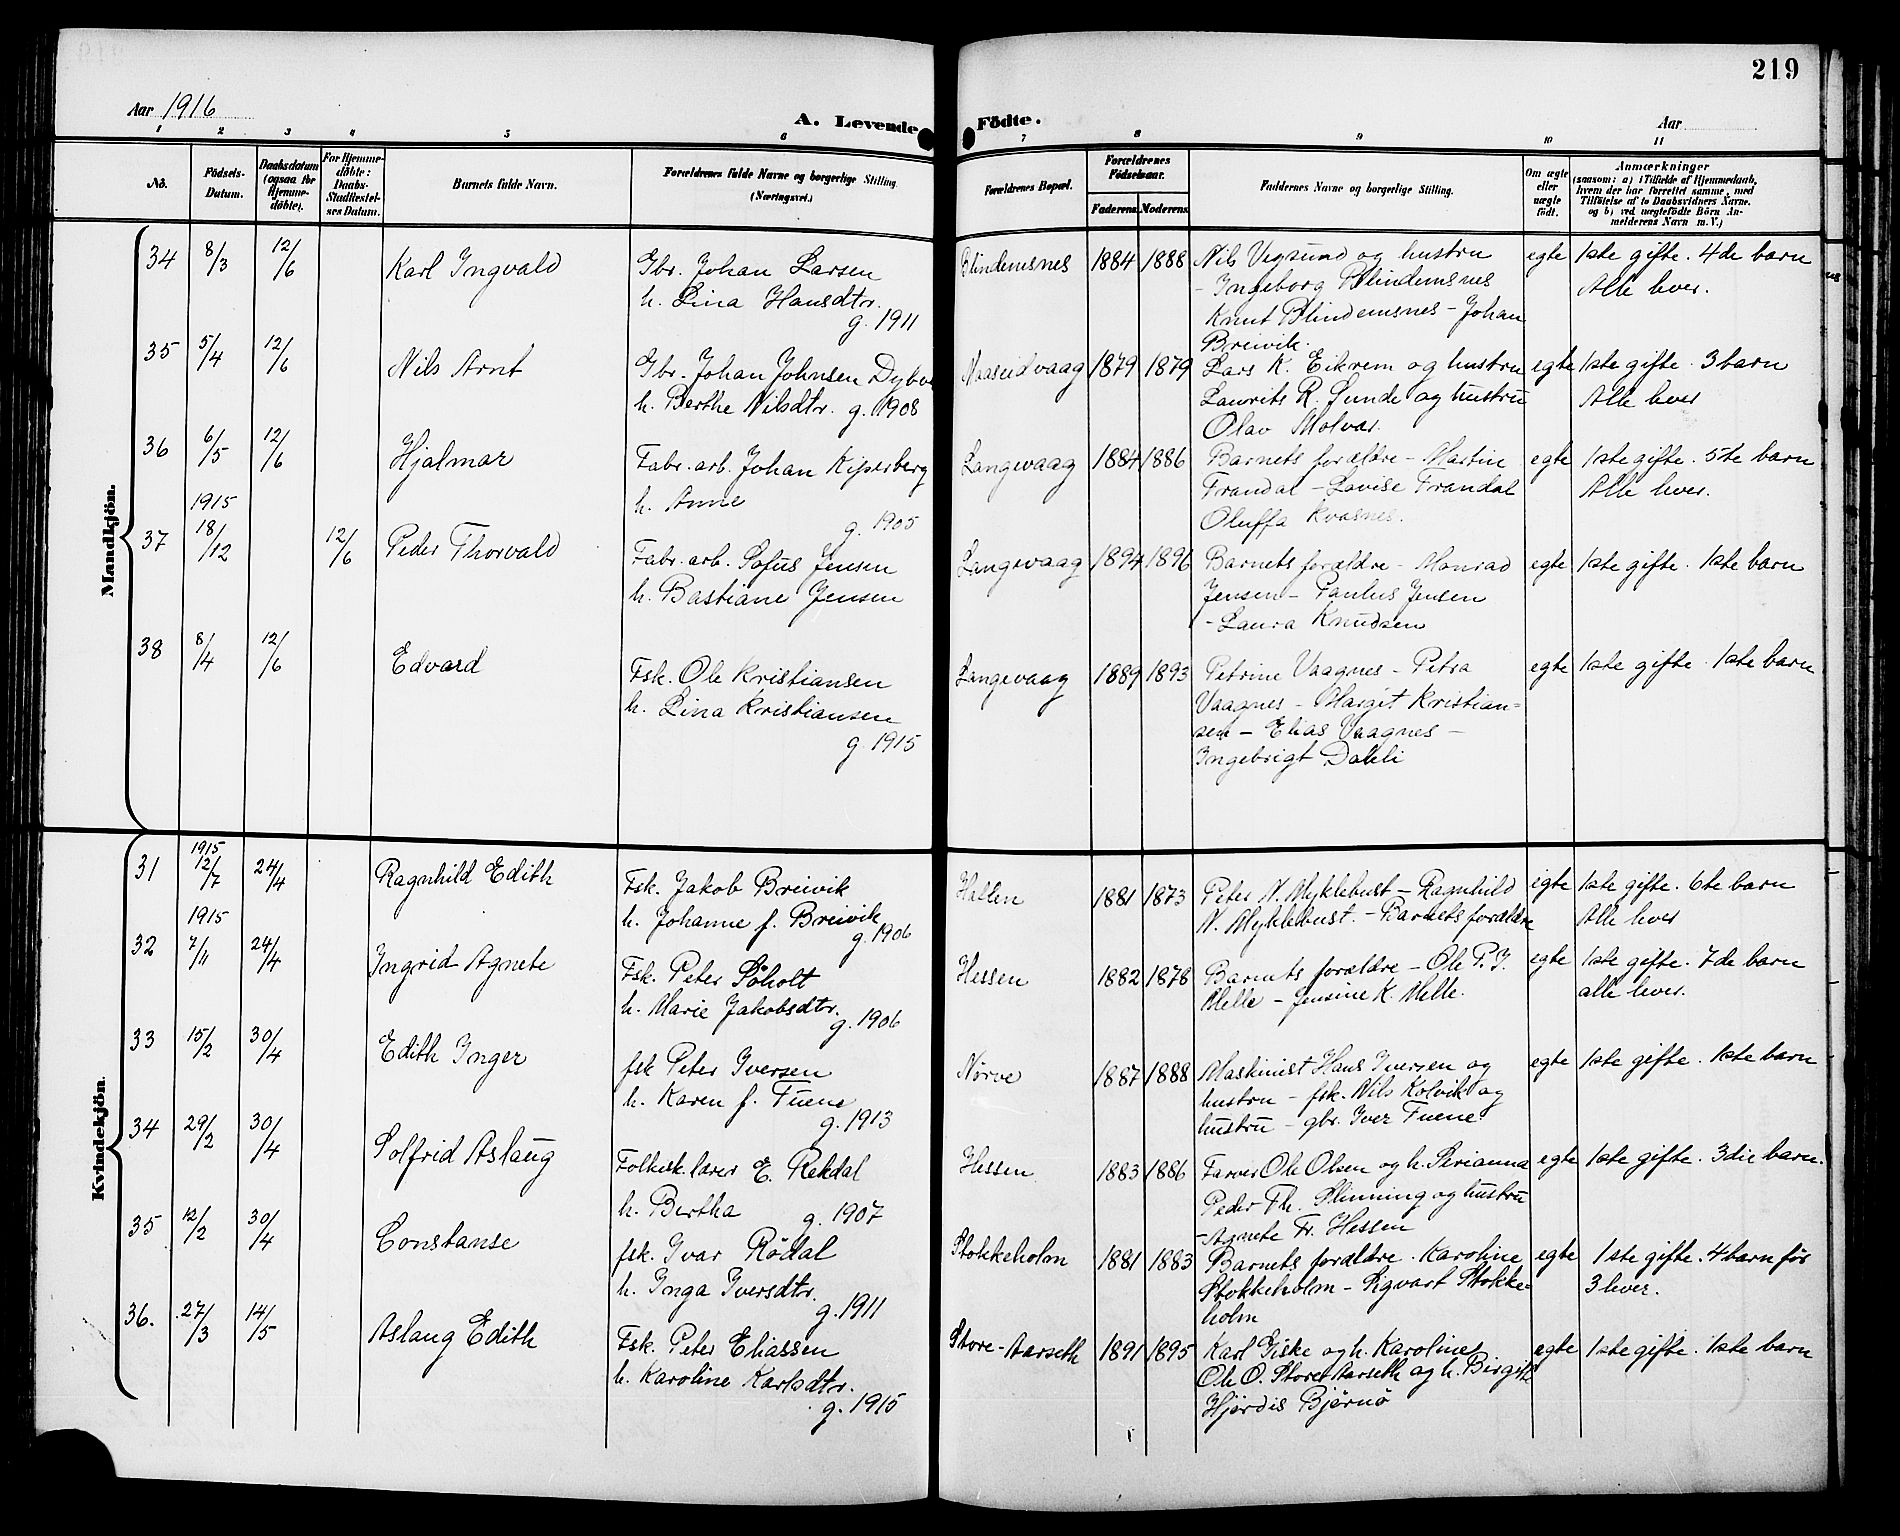 219
Aar 1916
A. Levende Födte.
Aar
1 2 3 4 5 6 7 8 9 10 11
No.
Födsels-Datum.
Daabsdatum (ogsaa for Hjemme-döbte).
For Hjemme-döbte: Daabs-Stadfestel-ses Datum.
Barnets fulde Navn.
Forældrenes fulde Navne og borgerlige Stilling. (Næringsvei.)
Forældrenes Bopæl.
Forældrenes Födselsaar.
Faderens Moderens
Faddernes Navne og borgerlige Stilling.
Om ægte eller uægte födt.
Anmærkninger
(saasom: a) i Tilfælde af Hjemmedaab, hvem der har forrettet samme, med Tilföielse af to Daabsvidners Navne. og b) ved uægtefödte Börn An-melderens Navn m. V.)
Mandkjön.
34 8/3 12/6 Karl Ingvald
Gbr. Johan Larsen
h. Lina Hansdtr.
g. 1911
Blindemsnes 1884 1888
Nils Vegsund og hustru
- Ingeborg Blindemsnes
Knut Blindemsnes - Johan
Breivik.
egte 1ste gifte. 4de barn
Alle lever.
35 5/4 12/6 Nils Arnt
Gbr. Johan Johnsen
h. Berthe Nilsdtr. g. 1908
1879 1879
Lars K. Eikrem og hustru
Laurits R. Sunde og hustru
Olav Molvær.
egte 1ste gifte. 3 barn
Alle lever
36 6/5 12/6 Hjalmar
Fabr. arb. Johan Kipperberg
h. Anne
g. 1905
Langevaag 1884 1886
Barnets forældre - Martin
Frandal - Lovise Frandal
Oluffa Kvasnes.
egte 1ste gifte. 5te barn
Alle lever.
37 1915 18/12 12/6 Peder Thorvald
Fabr. arb. Sofus Jensen
h. Bastiane Jensen
Langevaag 1894 1896
Barnets forældre - Monrad
Jensen - Paulus Jensen
- Laura Knudsen
egte 1ste gifte. 1ste barn
38 8/4 12/6 Edvard
Fsk. Ole Kristiansen
h. Lina Kristiansen
g. 1915
Langevaag 1889 1893
Petrine Vaagnes - Petra
Vaagnes - Margit Kristian=
sen - Elias Vaagnes -
Ingebrigt Dahli
egte 1ste gifte. 1ste barn
Kvindekjön.
31 1915 12/7 24/4 Ragnhild Edith
Fsk. Jakob Breivik
h. Johanne f. Breivik
g. 1906
Hallen 1881 1873
Peter N. Myklebust - Ragnhild
N. Myklebust. - Barnets forældre
egte 1ste gifte. 6te barn
Alle lever
32 1915 7/11 24/4 Ingrid Agnete
Fsk. Peter Søholt
h. Marie Jakobsdtr.
g. 1906
Hessen 1882 1878
Barnets forældre - Ole P. J.
Melle - Jensine K. Melle.
egte 1ste gifte. 7de barn
alle lever.
33 15/2 30/4 Edith Inger
fsk Peter Iversen
h. Karen f. Fuene
g. 1913
Nørve 1887 1888
Maskinist Hans Iversen og
hustru - fsk. Nils Kolvik og
hustru - gbr. Iver Fuene
egte 1ste gifte. 1ste barn
34 29/2 30/4 Solfrid Aslaug
Folkesk.lærer E. Rekdal
h. Bertha g. 1907
Hessen 1883 1886
Farver Ole Olsen og h. Serianna
Peder Th. Slinning og hustru
- Agnete Fr. Hessen
egte 1ste gifte. 3die barn.
35 12/2 30/4 Constanse
fsk. Ivar Rødal
h. Inga Iversdtr.
g. 1911
Stokkeholm 1881 1883
Barnets forældre. Karoline
Stokkeholm - Sigvart Stokke=
holm
egte 1ste gifte. 4 barn før
3 lever.
36. 27/3 14/5 Aslaug Edith
Fsk. Peter Eliassen
h. Karoline Karlsdtr.
g. 1915
Store-Aarseth 1891 1895
Karl Giske og h. Karoline
Ole O. Store Aarseth og h. Birgitte
Hjørdis Bjørnø
egte 1ste gifte. 1ste barn